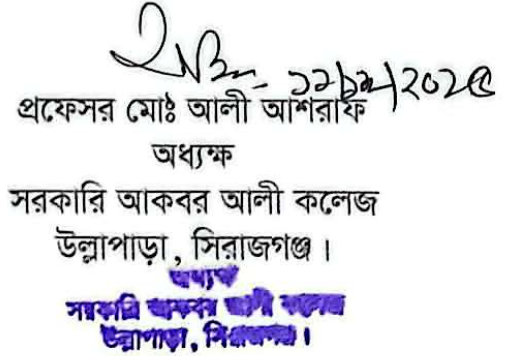 ১১/১২/২০২৫
প্রফেসর মোঃ আলী আশরাফ
অধ্যক্ষ
সরকারি আকবর আলী কলেজ
উল্লাপাড়া, সিরাজগঞ্জ।
অধ্যক্ষ
সরকারি আকবর আলী কলেজ
উল্লাপাড়া, সিরাজগঞ্জ।